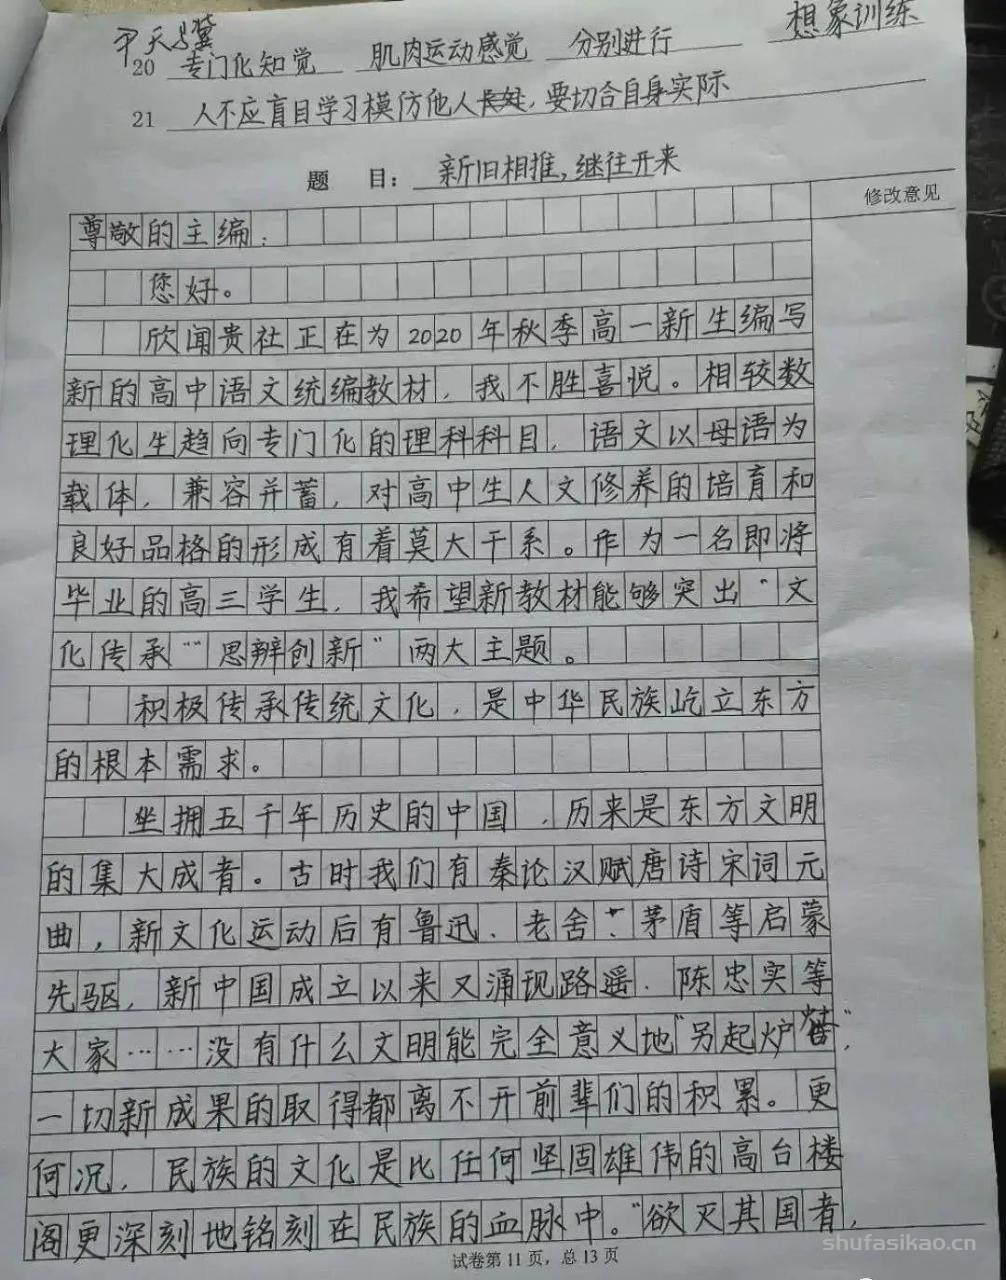 20 专门化知觉 肌肉运动感觉 分别进行 想象训练
21 人不应盲目学习模仿他人长处,要切合自身实际
题 目: 新旧相推,继往开来
修改意见
尊敬的主编:
您好。
欣闻贵社正在为2020年秋季高一新生编写
新的高中语文统编教材,我不胜喜悦。相较数
理化生趋向专门化的理科科目,语文以母语为
载体,兼容并蓄,对高中生人文修养的培育和
良好品格的形成有着莫大干系。作为一名即将
毕业的高三学生,我希望新教材能够突出“文
化传承”“思辨创新”两大主题。
积极传承传统文化,是中华民族屹立东方
的根本需求。
坐拥五千年历史的中国,历来是东方文明
的集大成者。古时我们有秦论汉赋唐诗宋词元
曲,新文化运动后有鲁迅、老舍、茅盾等启蒙
先驱,新中国成立以来又涌现路遥、陈忠实等
大家……没有什么文明能完全意义地“另起炉灶”,
一切新成果的取得都离不开前辈们的积累。更
何况,民族的文化是比任何坚固雄伟的高台楼
阁更深刻地铭刻在民族的血脉中。“欲灭其国者,
试卷第11页,总13页
shufasikao.cn